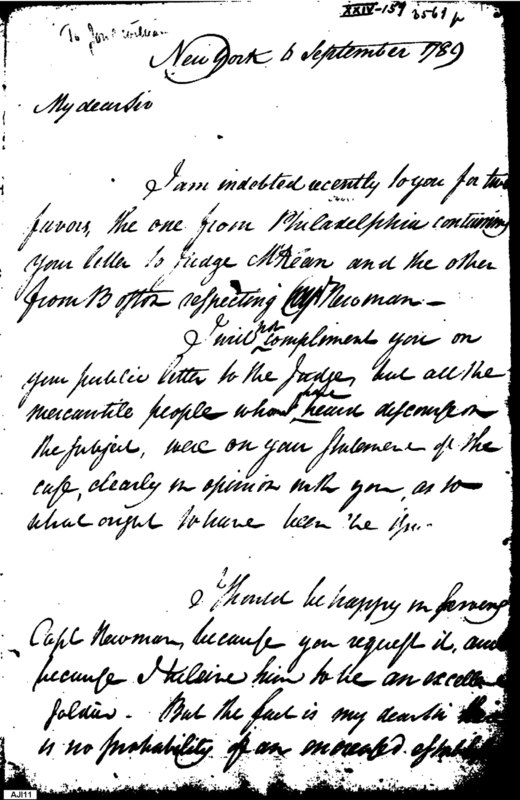 XXIV-159 3561 p
To
New York 6 September 1789
My dear Sir
I am indebted recently to you for two
favors, the one from Philadelphia containing
your letter to Judge McKean and the other
from Boston respecting Capt Newman -
I will not compliment you on
your public letter to the Judge, but all the
mercantile people whom I have heard discourse on
the subject, were on your statement of the
case, clearly in opinion with you, as to
what ought to have been the
I should be happy in serving
Capt Newman, because you request it, and
because I believe him to be an excellent
soldier - But the fact is my dear sir there
is no probability of an encreased
AJI11